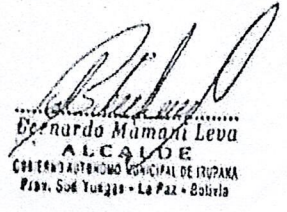 Bernardo Mamani Leva
ALCALDE
GOBIERNO AUTONOMO MUNICIPAL DE IRUPANA
Prov. Sud Yungas - La Paz - Bolivia